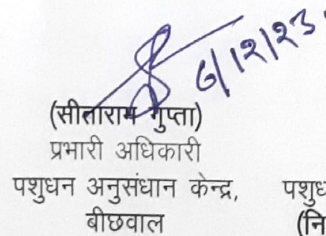 6/12/23
(सीताराम गुप्ता)
प्रभारी अधिकारी
पशुधन अनुसंधान केन्द्र,
बीछवाल